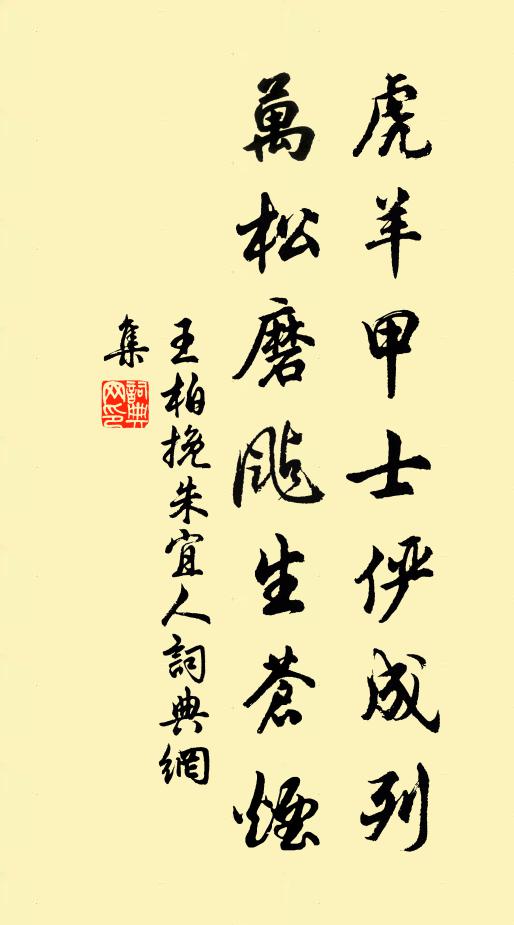 虎羊甲士俨成列
萬松磨颭生蒼煙
王柏挽朱宜人詞典網
集
詞典
网印